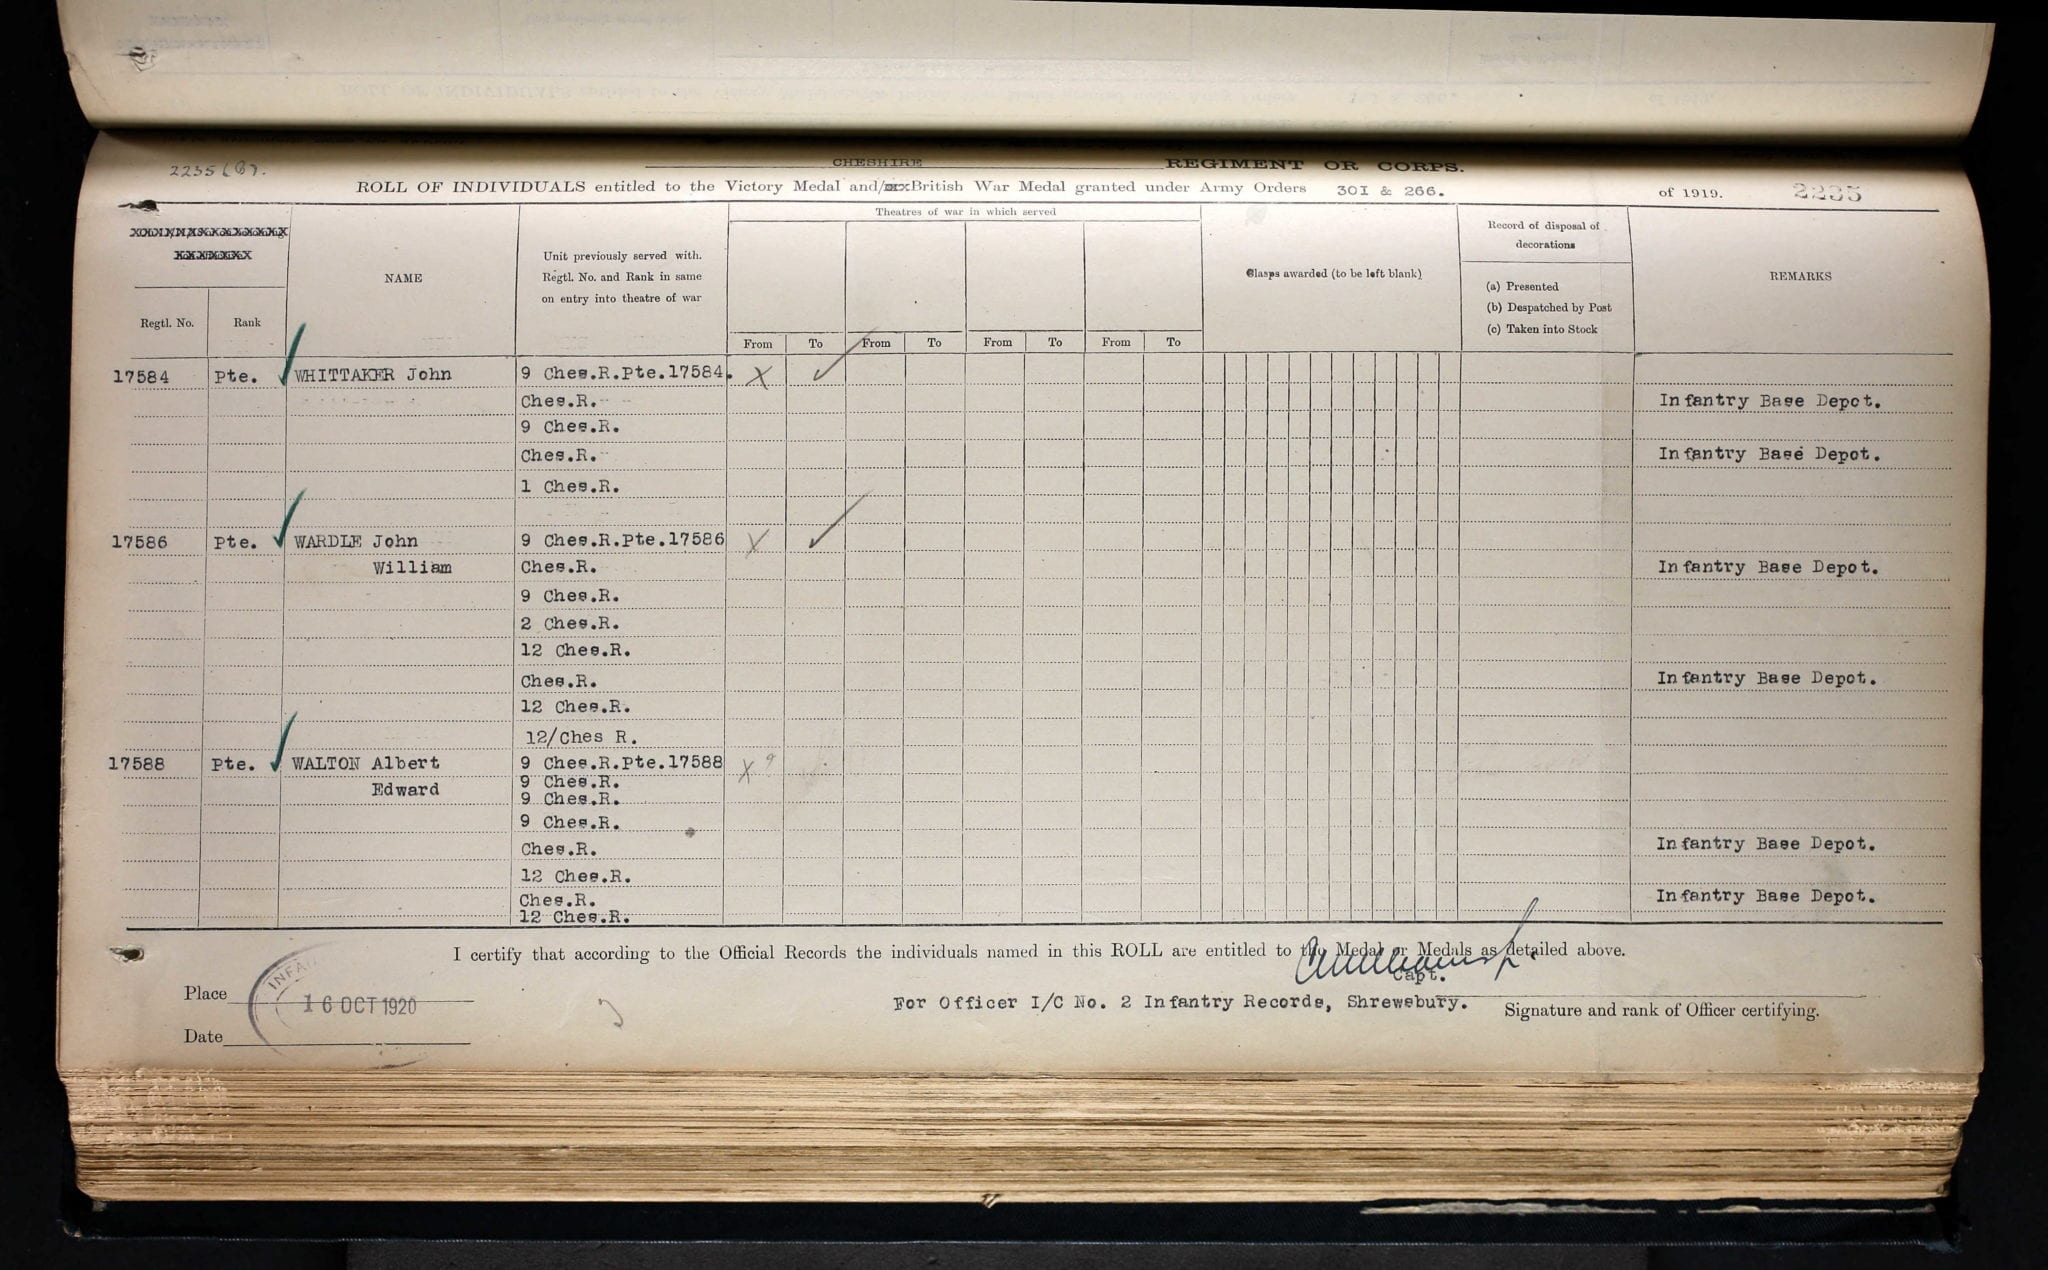 2235 (B).
CHESHIRE REGIMENT OR CORPS.
ROLL OF INDIVIDUALS entitled to the Victory Medal and/ British War Medal granted under Army Orders 301 & 266. of 1919. 2235
Theatres of war in which served
Record of disposal of decorations
NAME
Unit previously served with. Regtl. No. and Rank in same on entry into theatre of war
Clasps awarded (to be left blank)
REMARKS
(a) Presented
(b) Despatched by Post
(c) Taken into Stock
Regtl. No. Rank
From To From To From To From To
17584 Pte. WHITTAKER John 9 Ches.R.Pte.17584. X
Ches.R. Infantry Base Depot.
9 Ches.R.
Ches.R. Infantry Base Depot.
1 Ches.R.
17586 Pte. WARDLE John 9 Ches.R.Pte.17586 X
William Ches.R. Infantry Base Depot.
9 Ches.R.
2 Ches.R.
12 Ches.R.
Ches.R. Infantry Base Depot.
12 Ches.R.
12/Ches R.
17588 Pte. WALTON Albert 9 Ches.R.Pte.17588 X
Edward 9 Ches.R.
9 Ches.R.
9 Ches.R.
Ches.R. Infantry Base Depot.
12 Ches.R.
Ches.R. Infantry Base Depot.
12 Ches.R.
I certify that according to the Official Records the individuals named in this ROLL are entitled to the Medal or Medals as detailed above.
Capt.
Place
16 OCT 1920
For Officer I/C No. 2 Infantry Records, Shrewsbury. Signature and rank of Officer certifying.
Date